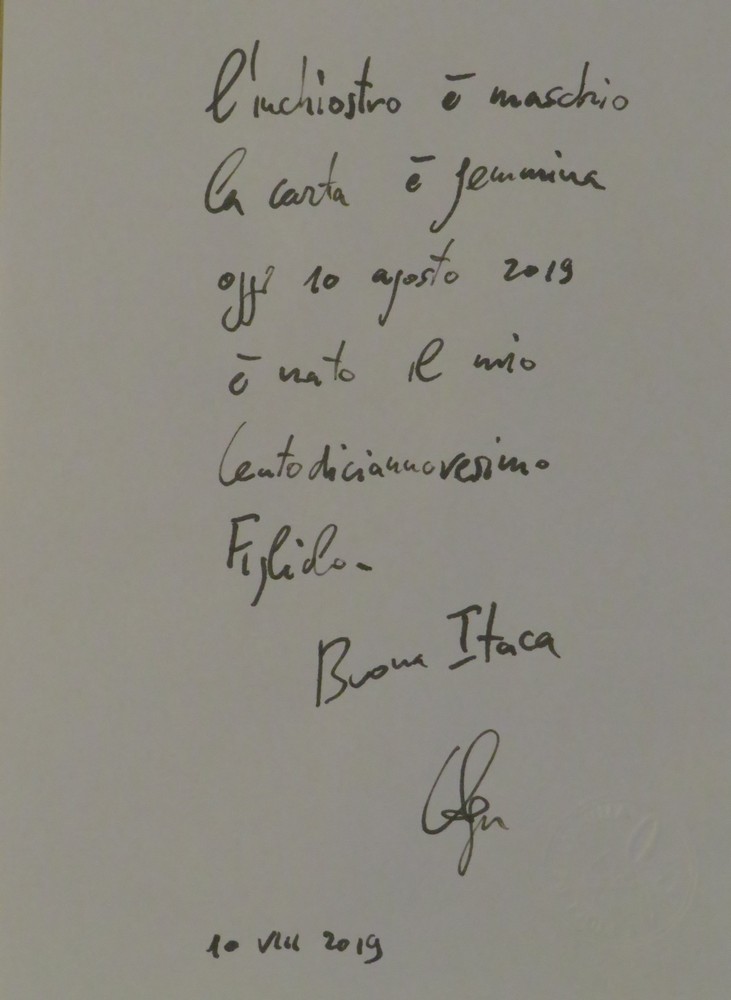 l'inchiostro è maschio
la carta è femmina
oggi 10 agosto 2019
è nato il mio
Centodiciannovesimo
Figlido-
Buona Itaca
10 VIII 2019